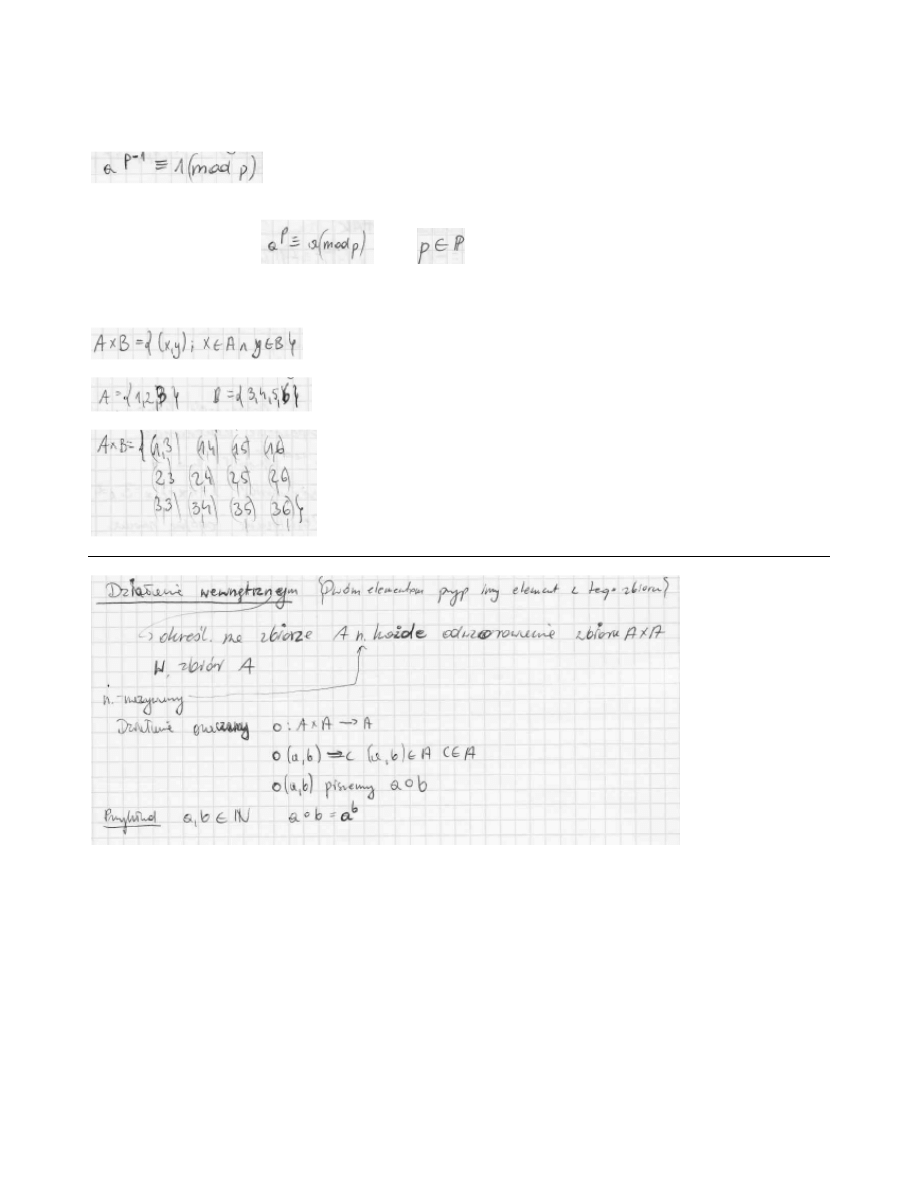 a^(p-1) ≡ 1(mod p)
a^p ≡ a(mod p) p ∈ ℙ
A×B={(x,y); x∈A ∧ y∈B}
A={1,2,3} B={3,4,5,6}
A×B={(1,3) (1,4) (1,5) (1,6)
(2,3) (2,4) (2,5) (2,6)
(3,3) (3,4) (3,5) (3,6)}
Działanie wewnętrznym (Dwóm elementom przyp inny element z tego zbioru)
→ określ. na zbiorze A n. każde odwzorowanie zbioru A×A
w. zbiór A
n. - nazywamy
Działanie oznaczamy o : A×A → A
o (a,b) = c (a,b)∈A c∈A
o(a,b) piszemy a o b
Przykład a,b ∈ ℕ a o b = a^b